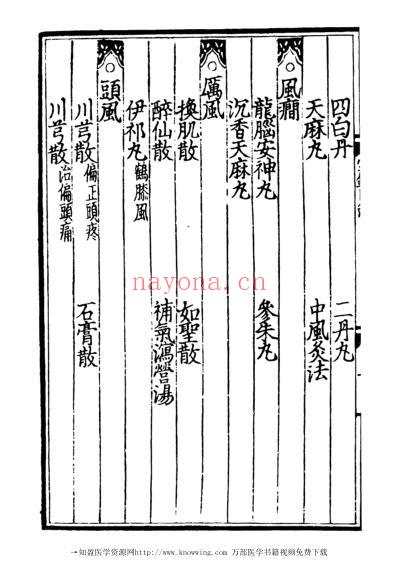 四白丹 二丹丸
天麻丸 中風灸法
風癇
龍腦安神丸 參朱丸
沉香天麻丸
厲風
換肌散 如聖散
醉仙散 補氣瀉營湯
伊祁丸 鶴膝風
頭風
川芎散 偏正頭疼 石膏散
川芎散 治偏頭痛
nayona.cn
→知盈医学资源网http://www.knowwing.com 万部医学书籍视频免费下载